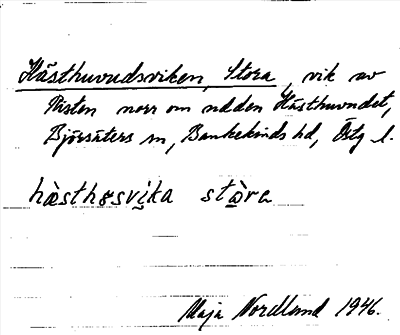 Hästhuvudsviken, Stora, vik av
Risten norr om udden Hästhuvudet,
Björsäters sn, Bankekinds hd, Östg l.
hàsthɵsvi̬ka stὼra
Maja Nordlund 1946.